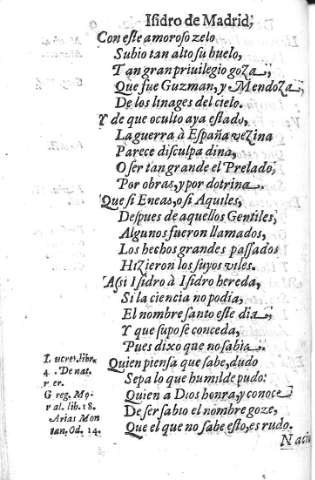 Isidro de Madrid,
Con este amoroso zelo
Subio tan alto su buelo,
Tan gran priuilegio goza,
Que fue Guzman, y Mendoza
De los linages del cielo.
Y de que oculto aya estado,
La guerra à España vezina
Parece disculpa dina,
O ser tan grande el Prelado,
Por obras, y por dotrina.
Que si Eneas, o si Aquiles,
Despues de aquellos Gentiles,
Algunos fueron llamados,
Los hechos grandes passados
Hizieron los suyos viles.
Assi Isidro à Isidro hereda,
Si la ciencia no podia,
El nombre santo este dia,
Y que supo se conceda,
Pues dixo que no sabia.
Lucret. libr.
4. De nat.
rer.
Greg. Mo-
ral. lib. 18.
Arias Mon
tan, Od. 14.
Quien piensa que sabe, dudo
Sepa lo que humilde pudo:
Quien a Dios honra, y conoce
De ser sabio el nombre goze,
Que el que no sabe esto, es rudo.
Naciò